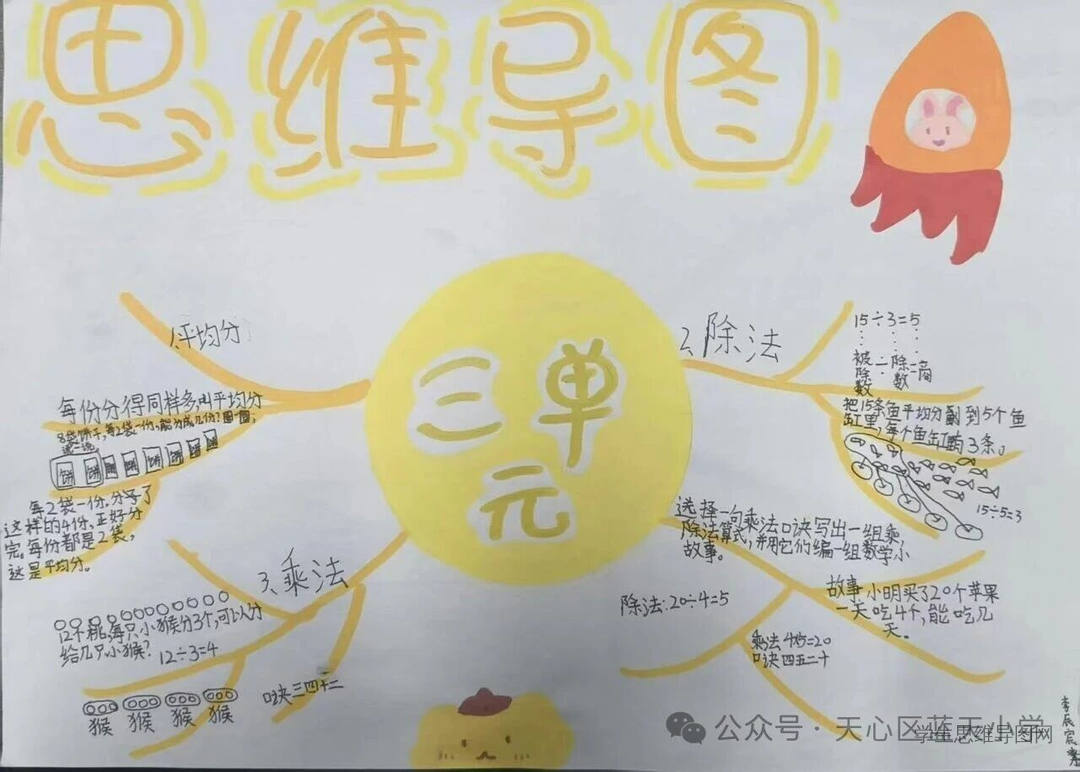 思维导图
三单元
1.平均分
每份分得同样多叫平均分
8袋饼干,每2袋一份,能分成几份?圈一圈。
饼 饼 饼 饼 饼 饼 饼 饼
每2袋一份,分了
这样的4份,正好分
完。每份都是2袋,
这是平均分。
2.除法
15÷3=5
被除数÷除数=商
把15条鱼平均分到5个鱼
缸里,每个鱼缸有3条。
15÷5=3
3.乘法
12个桃,每只小猴分3个,可以分
给几只小猴?
12÷3=4
猴 猴 猴 猴
口诀三四十二
选择一句乘法口诀写出一组乘,
除法算式,并用它们编一组数学小
故事。
除法:20÷4=5
乘法 4×5=20
口诀 四五二十
故事:小明买了20个苹果
一天吃4个,能吃几
天。
公众号·天心区蓝天小学
学生思维导图网